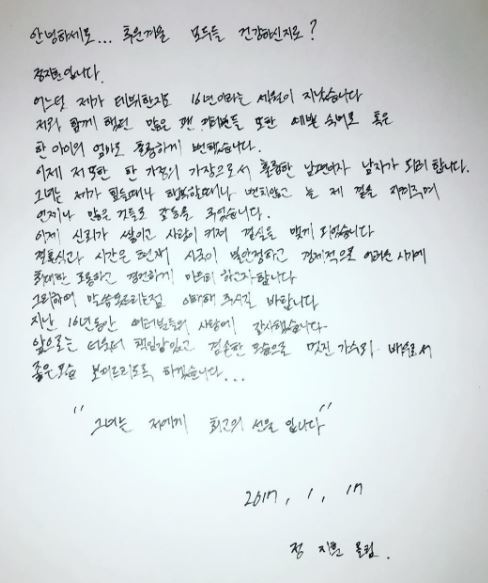 안녕하세요... 후은끼을 모두들 건강하신지요?
정지훈입니다.
어느덧 제가 데뷔한지도 16년이라는 세월이 지났습니다
저와 함께 했던 많은 팬 여러분들 또한 예쁜 숙녀로 혹은
한 아이의 엄마로 훌륭하게 변했습니다.
이제 저 또한 한 가정의 가장으로서 훌륭한 남편이자 남자가 되려 합니다.
그녀는 제가 힘들때나 행복할때나 변치않고 늘 제 곁을 지켜주며
언제나 많은 것들로 감동을 주었습니다.
이제 신뢰가 쌓이고 사랑이 커져 결실을 맺게 되었습니다
결혼식과 시간은 현재 시국이 불안정하고 경제적으로 어려운 시기에
최대한 조용하고 경건하게 마무리 하고자합니다
그리하여 말씀못드리는점 이해해 주시길 바랍니다
지난 16년동안 여러분들의 사랑에 감사했습니다
앞으로는 더욱더 책임감있고 겸손한 모습으로 멋진 가수와 배우로서
좋은모습 보여드리도록 하겠습니다...
"그녀는 저에게 최고의 선물 입니다"
2017, 1, 17
정 지훈 올림.